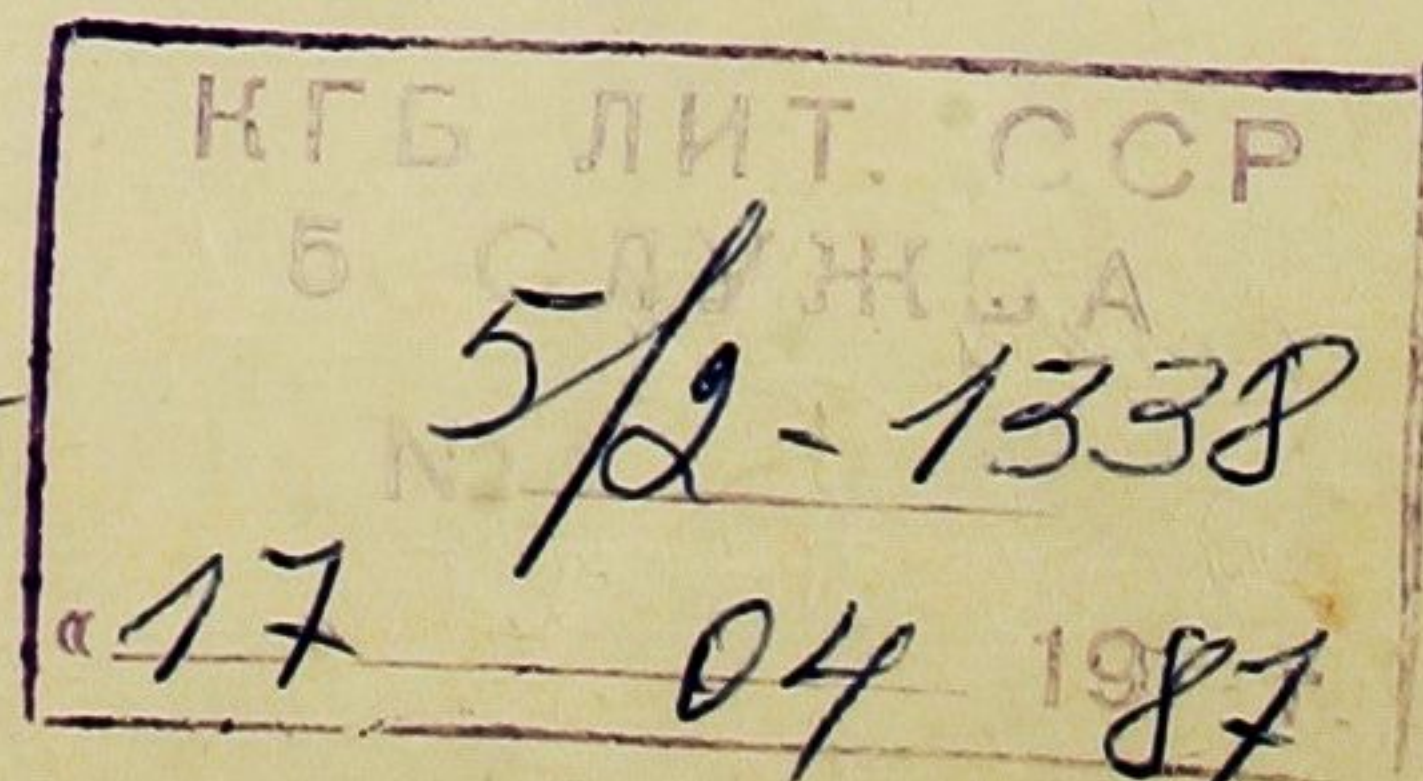 КГБ ЛИТ. ССР
5 СЛУЖБА
№ 5/2 - 1338
«17 04 1987